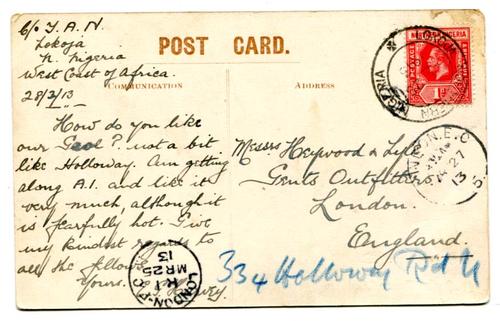 c/o T.A.N.
Lokoja
N. Nigeria
West Coast of Africa.
28/2/13
POST CARD.
COMMUNICATION
ADDRESS
How do you like
our Gaol? not a bit
like Holloway. Am getting
along A.1. and like it
very much, although it
is fearfully hot. Give
my kindest regards to
all the fellows
Yours.
Messrs Heywood & Lyle
Gents Outfitters,
London.
England.
334 Holloway Rd N
NIGERIA
POSTAGE
1d
LONDON. E.C
MR 27
13
5
LONDON
K 1
MR 25
13